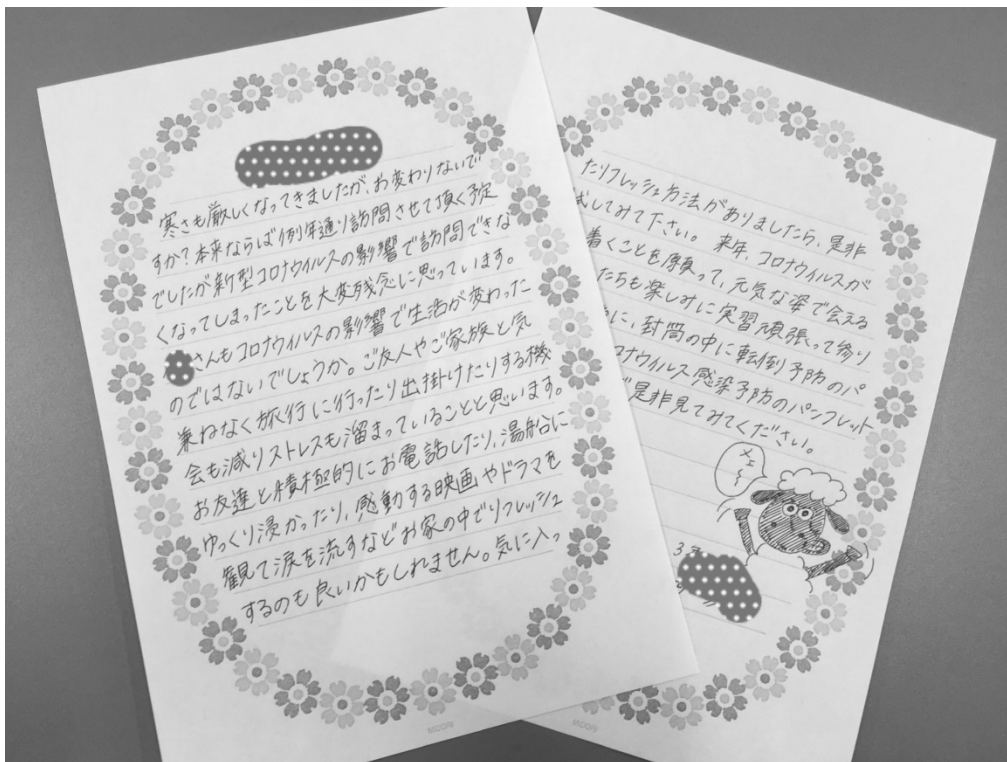 寒さも厳しくなってきましたが、お変わりないで
すか?本来ならば例年通り訪問させて頂く予定
でしたが新型コロナウイルスの影響で訪問できな
くなってしまったことを大変残念に思っています。
さんもコロナウイルスの影響で生活が変わった
のではないでしょうか。ご友人やご家族と気
兼ねなく旅行に行ったり出掛けたりする機
会も減りストレスも溜まっていることと思います。
お友達と積極的にお電話したり、湯船に
ゆっくり浸かったり、感動する映画やドラマを
観て涙を流すなどお家の中でリフレッシュ
するのも良いかもしれません。気に入っ
MIDORI
たリフレッシュ方法がありましたら、是非
試してみて下さい。 来年、コロナウイルスが
着くことを願って、元気な姿で会える
たちも楽しみに実習頑張って参り
に、封筒の中に転倒予防のパ
ロナウイルス感染予防のパンフレット
是非見てみてください。
メェ〜
3
MIDORI